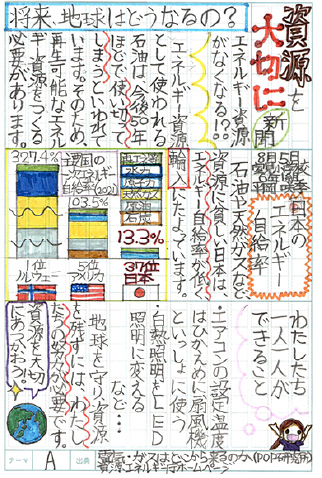 資源を
大切に
新聞
将来、地球はどうなるの？
エネルギー資源
がなくなる!?
エネルギー資源
として使われる
石油は、今後50年
ほどで使い切って
しまうといわれて
います。そのため、
再生可能なエネル
ギー資源をつくる
必要があります。
8月5日
日本の
エネルギー
自給率
石油や天然ガスなど、
資源に貧しい日本は
エネルギー自給率が低く
輸入にたよっています。
327.4%
103.5%
13.3%
水力
原子力
天然ガス
石油
石炭
1位
ノルウェー
5位
アメリカ
37位
日本
わたしたち
一人一人が
できること
・エアコンの設定温度
はひかえめに扇風機
といっしょに使う
・白熱照明をLED
照明に変える
など…
地球を守り資源
を残すには、わたし
たちの努力が必要です。
資源を大切に
あつかおう!
テーマ
A
出典
電気・ガスはどこから来るのか(POP研究所)
資源エネルギー庁ホームページ